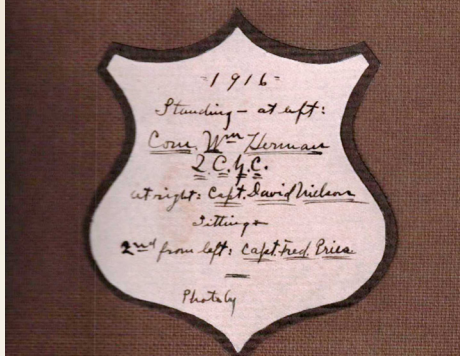 -1916-
Standing - at left:
Com. Wm Herman
Q.C.Y.C.
at right: Capt. David Nielson
Sitting -
2nd from left: Capt. Fred. Price
Photo by